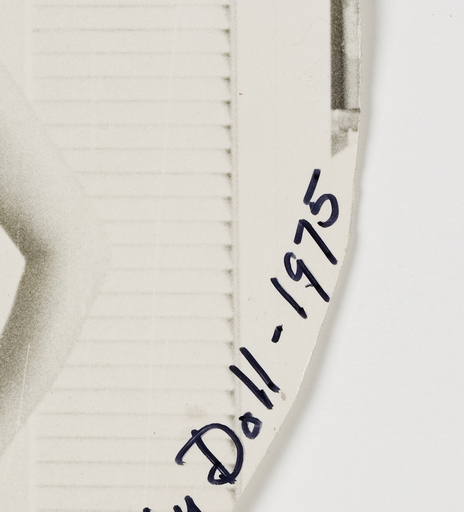 Doll - 1975